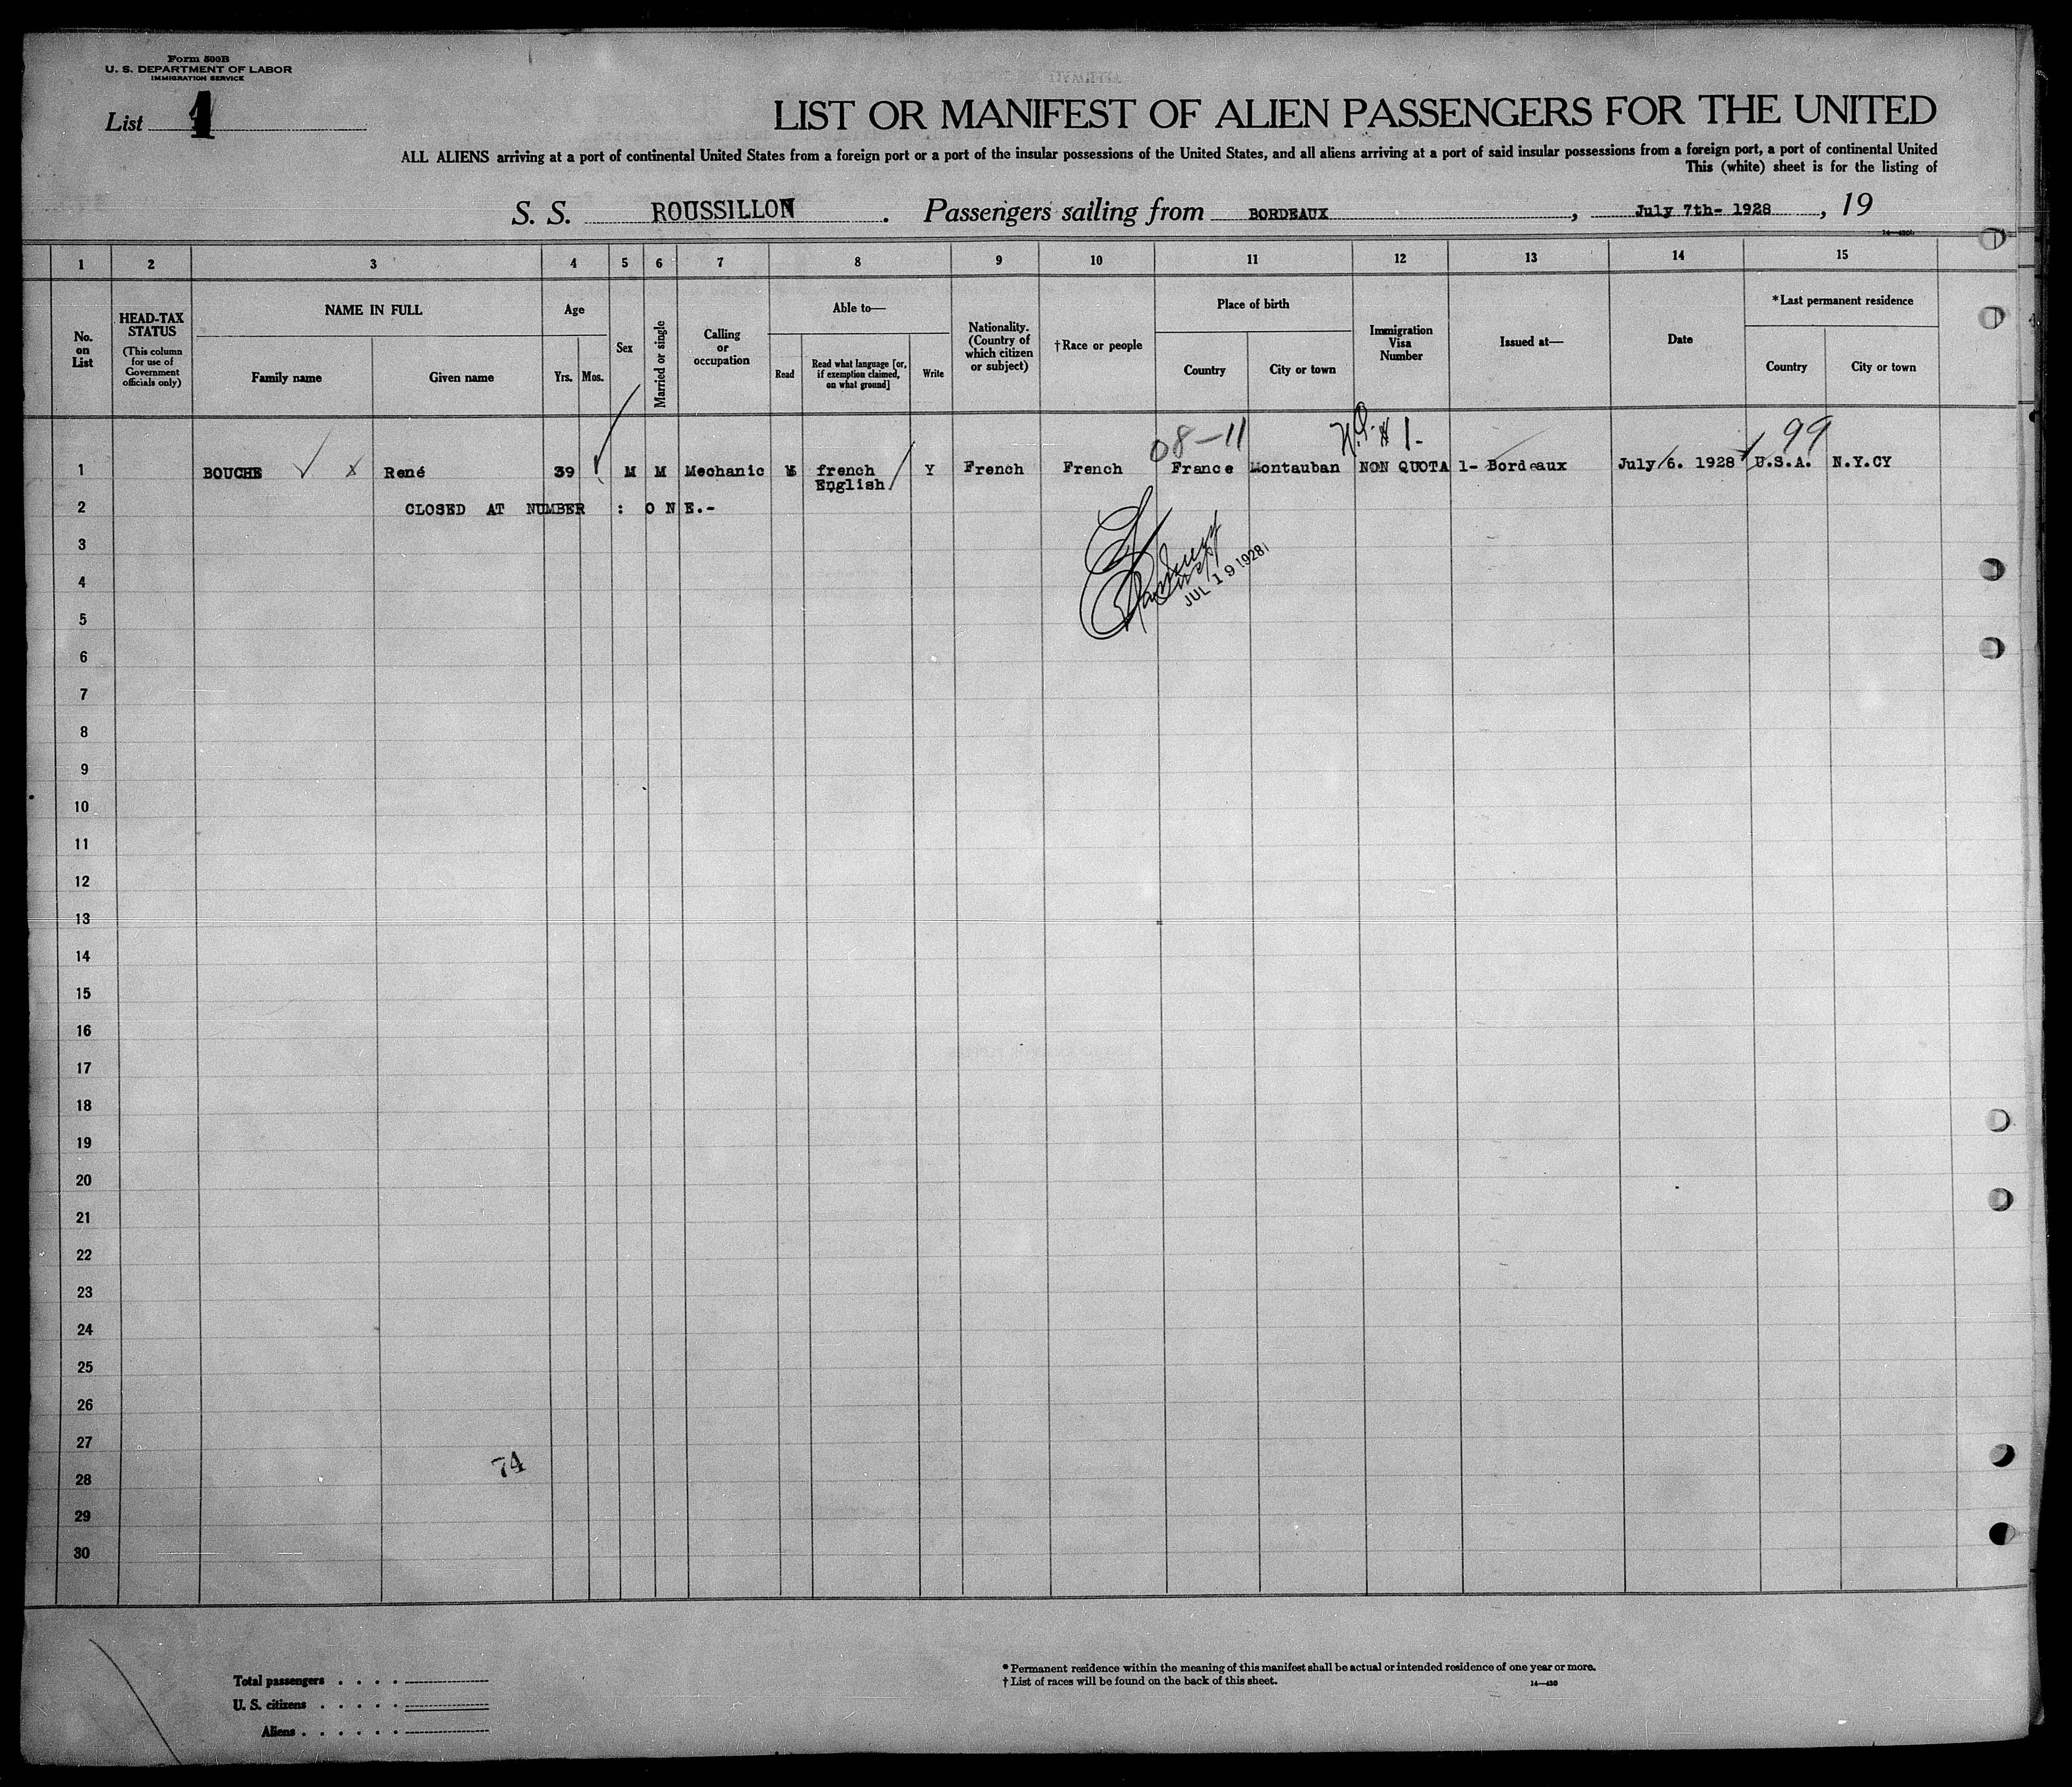 Form 500B
U. S. DEPARTMENT OF LABOR
IMMIGRATION SERVICE
List 1
LIST OR MANIFEST OF ALIEN PASSENGERS FOR THE UNITED
ALL ALIENS arriving at a port of continental United States from a foreign port or a port of the insular possessions of the United States, and all aliens arriving at a port of said insular possessions from a foreign port, a port of continental United
This (white) sheet is for the listing of
S. S. ROUSSILLON. Passengers sailing from BORDEAUX, July 7th- 1928, 19
1 2 3 4 5 6 7 8 9 10 11 12 13 14 15
No. on List
HEAD-TAX STATUS
(This column for use of Government officials only)
NAME IN FULL
Family name
Given name
Age
Yrs. Mos.
Sex
Married or single
Calling or occupation
Able to—
Read
Read what language [or, if exemption claimed, on what ground]
Write
Nationality. (Country of which citizen or subject)
†Race or people
Place of birth
Country
City or town
Immigration Visa Number
Issued at—
Date
*Last permanent residence
Country
City or town
08-11 1- 99
1 BOUCHE x René 39 M M Mechanic french Y French French France Montauban NON QUOTA 1- Bordeaux July 6. 1928 U.S.A. N.Y.CY
English
2 CLOSED AT NUMBER : O N E.-
3
JUL 19 1928
4
5
6
7
8
9
10
11
12
13
14
15
16
17
18
19
20
21
22
23
24
25
26
27
74
28
29
30
Total passengers . . . .
U. S. citizens . . . . .
Aliens . . . . . .
* Permanent residence within the meaning of this manifest shall be actual or intended residence of one year or more.
† List of races will be found on the back of this sheet.
14—430